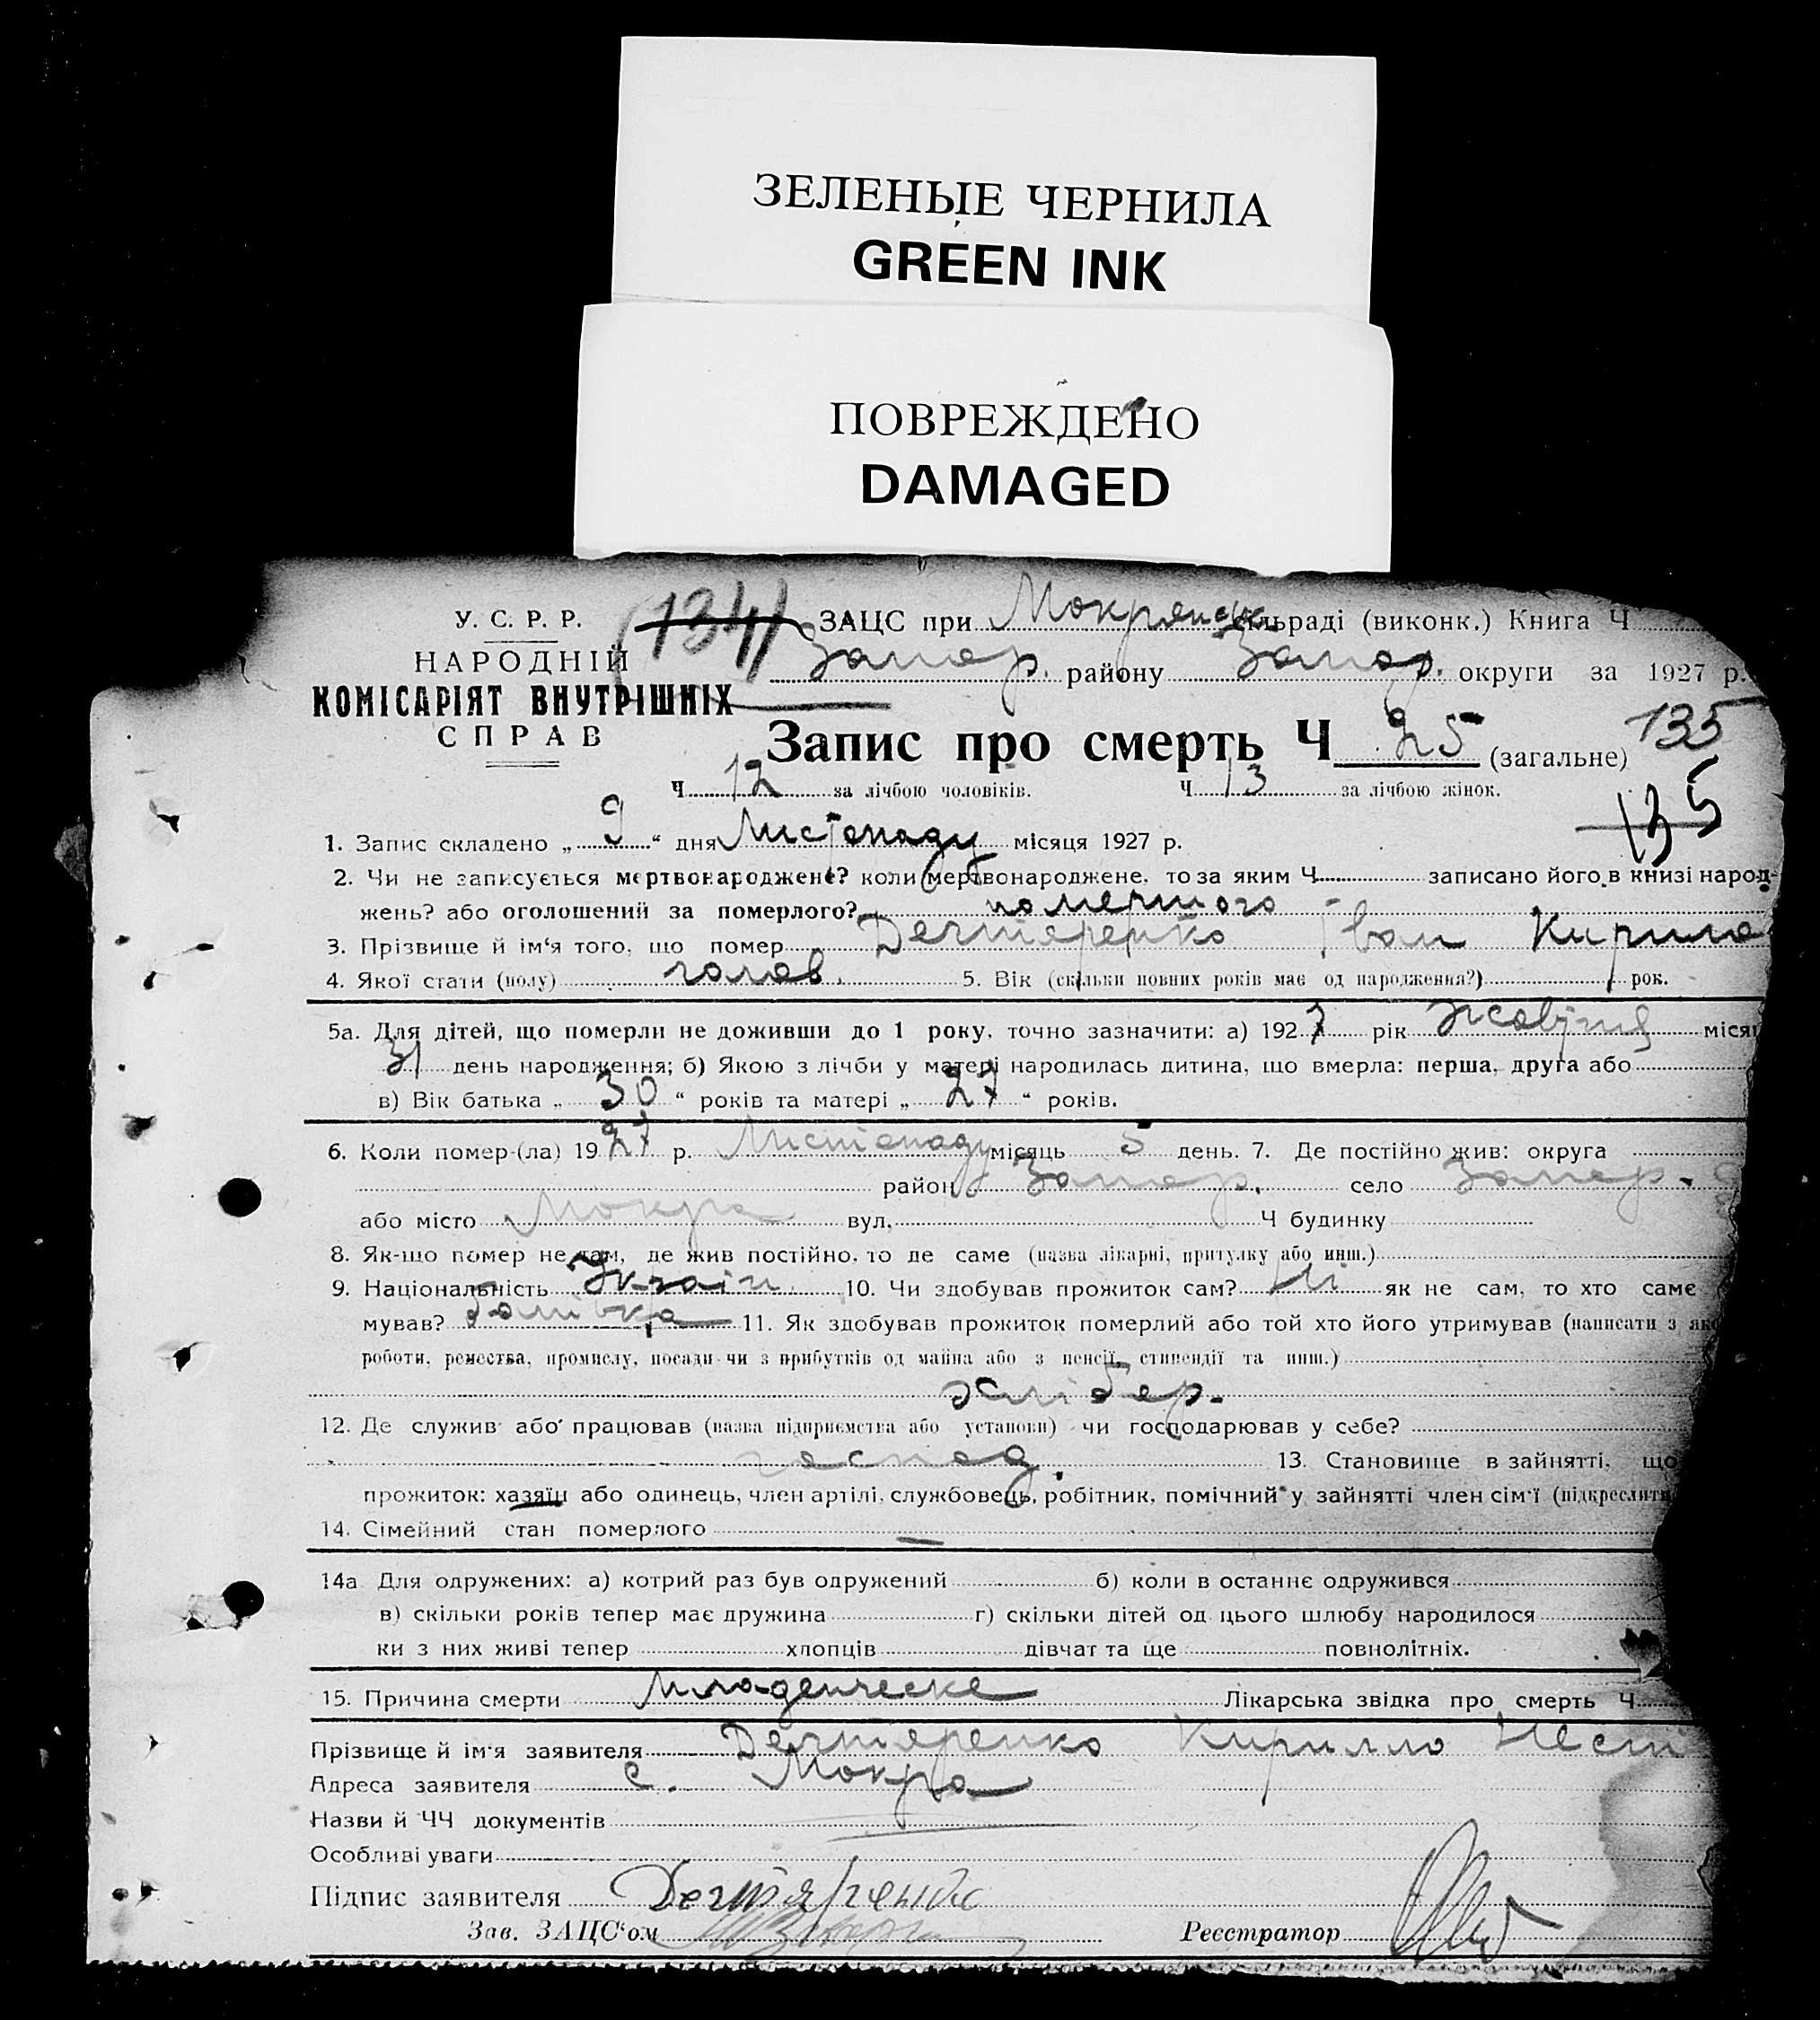 ЗЕЛЕНЫЕ ЧЕРНИЛА
GREEN INK
ПОВРЕЖДЕНО
DAMAGED
У. С. Р. Р. 134 ЗАЦС при Мокрянськ сільраді (виконк.) Книга Ч
НАРОДНІЙ Запор. району Запор. округи за 1927 р.
КОМІСАРІЯТ ВНУТРІШНІХ
СПРАВ
Запис про смерть Ч 25 (загальне) 135
Ч 12 за лічбою чоловіків. Ч 13 за лічбою жінок.
135
1. Запис складено „ 9 “ дня Листопаду місяця 1927 р.
2. Чи не записується мертвонароджене? коли мертвонароджене, то за яким Ч записано його в книзі народ-
жень? або оголошений за померлого? помершого
3. Прізвище й ім‘я того, що помер Дегтяренко Іван Кирило
4. Якої стати (полу) чолов. 5. Вік (скільки повних років має од народження?) рок.
5а. Для дітей, що померли не доживши до 1 року, точно зазначити: а) 1927 рік Жовтня місяц
31 день народження; б) Якою з лічби у матері народилась дитина, що вмерла: перша, друга або
в) Вік батька „ 30 “ років та матері „ 27 “ років.
6. Коли помер-(ла) 1927 р. Листопаду місяць 5 день. 7. Де постійно жив: округа
район Запор. село Запор.
або місто Мокра вул. Ч будинку
8. Як-що помер не там, де жив постійно, то де саме (назва лікарні, притулку або инш.)
9. Національність Україн. 10. Чи здобував прожиток сам? Ні як не сам, то хто саме
мував? батівка 11. Як здобував прожиток померлий або той хто його утримував (написати з як
роботи, ремества, промислу, посади чи з прибутків од майна або з пенсії, стипендії та инш.)
хлібор.
12. Де служив або працював (назва підприємства або установи) чи господарював у себе?
господ. 13. Становище в зайнятті, що
прожиток: хазяїн або одинець, член артілі, службовець, робітник, помічний у зайнятті член сім‘ї (підкреслити
14. Сімейний стан померлого —
14а Для одружених: а) котрий раз був одружений б) коли в останнє одружився
в) скільки років тепер має дружина г) скільки дітей од цього шлюбу народилося
ки з них живі тепер хлопців дівчат та ще повнолітніх.
15. Причина смерти Младенческе Лікарська звідка про смерть Ч
Прізвище й ім‘я заявителя Дегтяренко Кирилло Нест
Адреса заявителя с. Мокра
Назви й ЧЧ документів
Особливі уваги
Підпис заявителя Дегтяренко
Зав. ЗАЦС‘ом Реєстратор